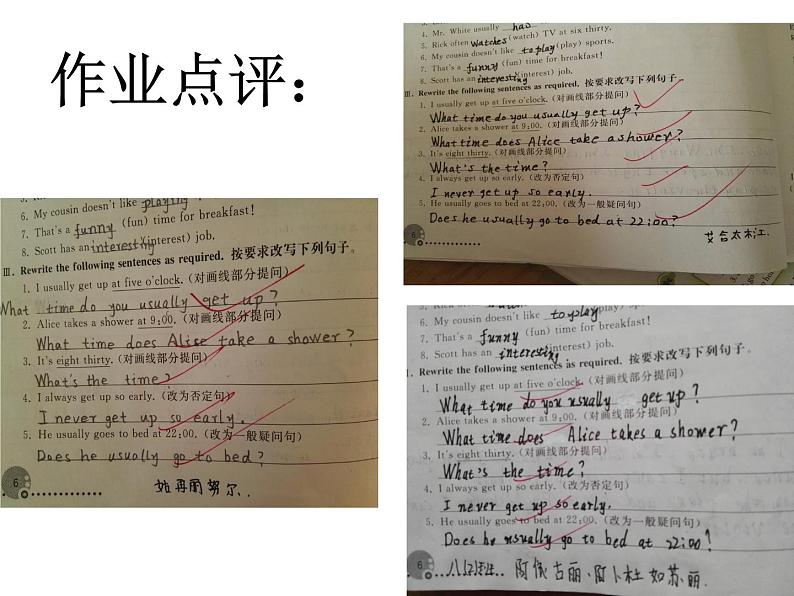 作业点评：
4. Mr. White usually has
5. Rick often watches (watch) TV at six thirty.
6. My cousin doesn't like to play (play) sports.
7. That's a funny (fun) time for breakfast!
8. Scott has an interesting (interest) job.
Ⅲ. Rewrite the following sentences as required. 按要求改写下列句子。
1. I usually get up at five o'clock. (对画线部分提问)
What time do you usually get up?
2. Alice takes a shower at 9:00. (对画线部分提问)
What time does Alice take a shower?
3. It's eight thirty. (对画线部分提问)
What's the time?
4. I always get up so early. (改为否定句)
I never get up so early.
5. He usually goes to bed at 22:00. (改为一般疑问句)
Does he usually go to bed at 22:00?
6
艾合太木江.
6. My cousin doesn't like playing
7. That's a funny (fun) time for breakfast!
8. Scott has an interesting (interest) job.
Ⅲ. Rewrite the following sentences as required. 按要求改写下列句子。
1. I usually get up at five o'clock. (对画线部分提问)
What time do you usually get up?
2. Alice takes a shower at 9:00. (对画线部分提问)
What time does Alise take a shower?
3. It's eight thirty. (对画线部分提问)
What's the time?
4. I always get up so early. (改为否定句)
I never get up so early.
5. He usually goes to bed at 22:00. (改为一般疑问句)
Does he usually go to bed?
6
6. My cousin doesn't like to play (play) sports.
7. That's a funny (fun) time for breakfast!
8. Scott has an interesting (interest) job.
Ⅰ. Rewrite the following sentences as required. 按要求改写下列句子。
1. I usually get up at five o'clock. (对画线部分提问)
What time do you usually get up?
2. Alice takes a shower at 9:00. (对画线部分提问)
What time does Alice takes a shower?
3. It's eight thirty. (对画线部分提问)
What's the time?
4. I always get up so early. (改为否定句)
I never get up so early.
5. He usually goes to bed at 22:00. (改为一般疑问句)
Does he usually go to bed at 22:00?
6
阿依古丽、阿卜杜如苏丽.